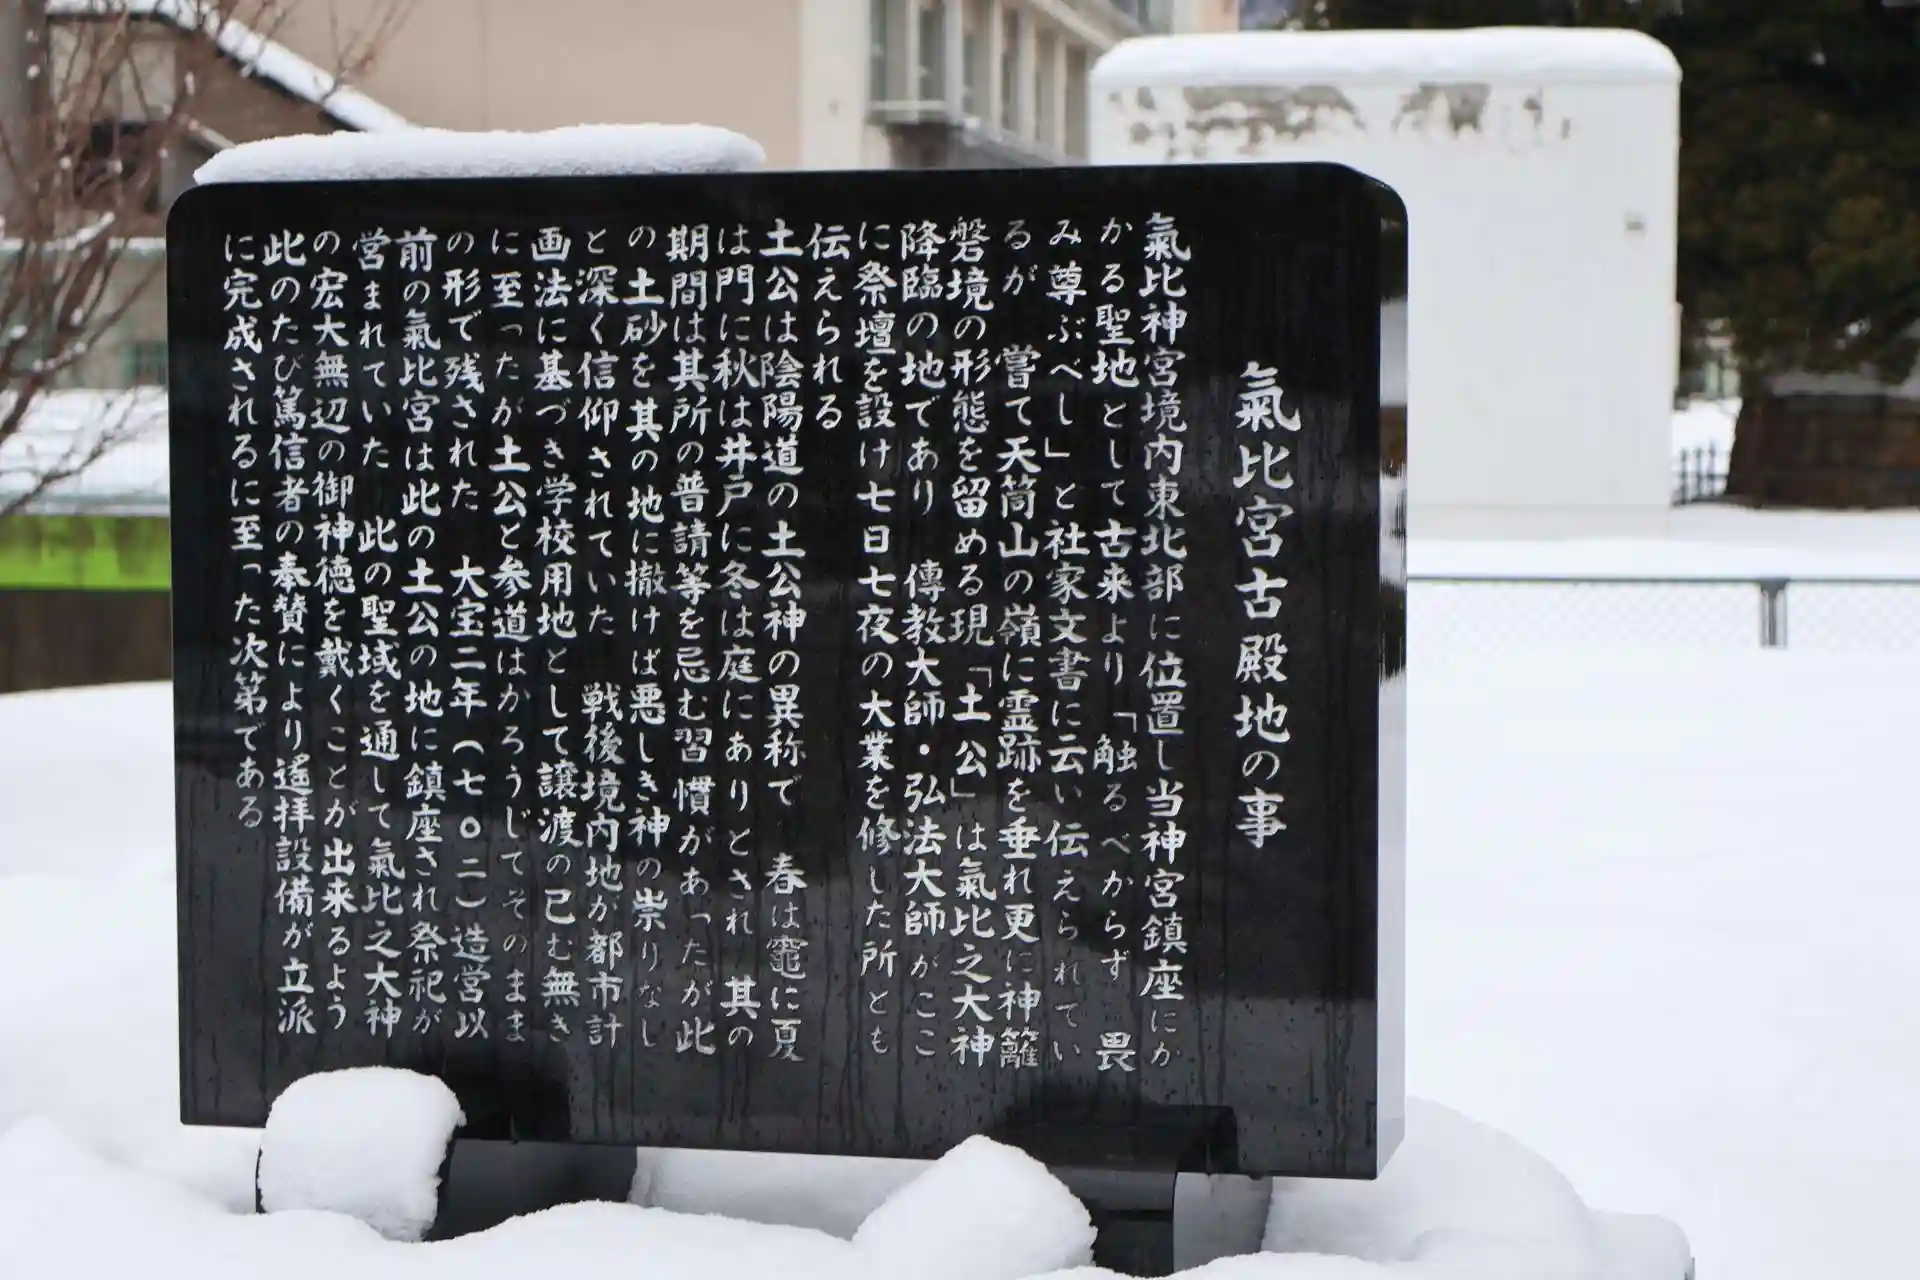 氣比宮古殿地の事
氣比神宮境内東北部に位置し当神宮鎮座にか
かる聖地として古来より「触るべからず 畏
み尊ぶべし」と社家文書に云い伝えられてい
るが 嘗て天筒山の嶺に霊跡を垂れ更に神籬
磐境の形態を留める現「土公」は氣比之大神
降臨の地であり 傳教大師・弘法大師がここ
に祭壇を設け七日七夜の大業を修した所とも
伝えられる
土公は陰陽道の土公神の異称で 春は竈に夏
は門に秋は井戸に冬は庭にありとされ 其の
期間は其所の普請等を忌む習慣があったが此
の土砂を其の地に撤けば悪しき神の祟りなし
と深く信仰されていた 戦後境内地が都市計
画法に基づき学校用地として譲渡の已む無き
に至ったが土公と参道はかろうじてそのまま
の形で残された 大宝二年(七〇二)造営以
前の氣比宮は此の土公の地に鎮座され祭祀が
営まれていた 此の聖域を通して氣比之大神
の宏大無辺の御神徳を戴くことが出来るよう
此のたび篤信者の奉賛により遙拝設備が立派
に完成されるに至った次第である